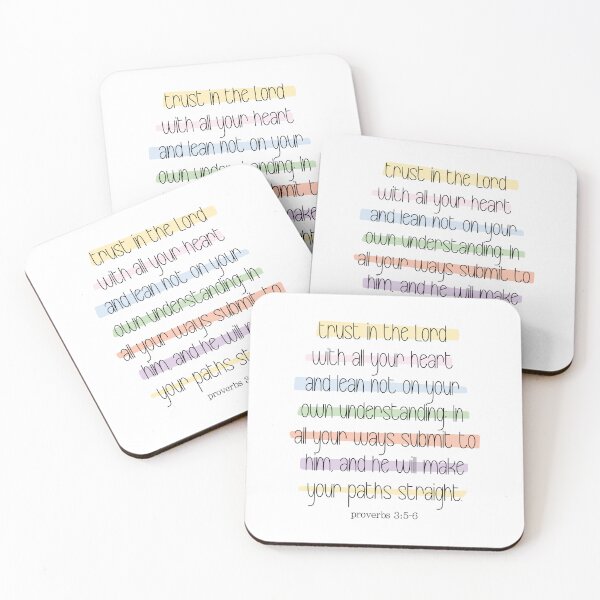 trust in the Lord
with all your heart
and lean not on your
own understanding. in
submit to
trust in the Lord
with all your heart
and lean not on your
own understanding. in
all your ways submit to
him, and he will make
trust in the Lord
with all your heart
and lean not on your
own understanding. in
all your ways submit to
him, and he will
your paths straight
proverbs
trust in the Lord
with all your heart
and lean not on your
own understanding. in
all your ways submit to
him, and he will make
your paths straight.
proverbs 3:5-6